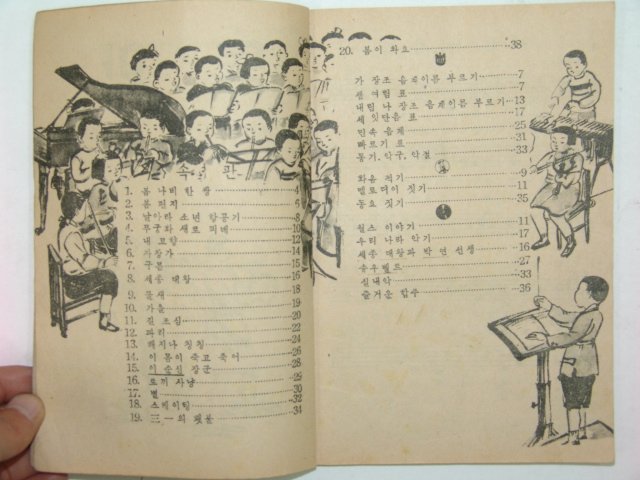 속 관
1. 봄 나비 한 쌍 4
2. 봄 편지 6
3. 날아라 소년 항공기 8
4. 무궁화 새로 피네 10
5. 내 고향 12
6. 자장가 14
7. 구름 15
8. 세종 대왕 16
9. 물새 18
10. 가을 19
11. 길 조심 20
12. 파리 22
13. 해지나 칭칭 24
14. 이 몸이 죽고 죽어 26
15. 이 순신 장군 28
16. 토끼 사냥
17. 별 30
18. 스케이팅 32
19. 三一의 횃불 34
20. 봄이 와요 38
가 장조 음계이름 부르기 7
센 여림 표 7
내림 나 장조 음계이름 부르기 13
세 잇단음 표 17
민속 음계 25
빠르기 표 31
동기, 악구, 악절 33
화음 적기 9
멜로디이 짓기 11
동요 짓기 35
윌스 이야기 11
우리 나라 악기 17
세종 대왕과 박 연 선생 16
슈우벨트 27
실내악 33
즐거운 합주 36